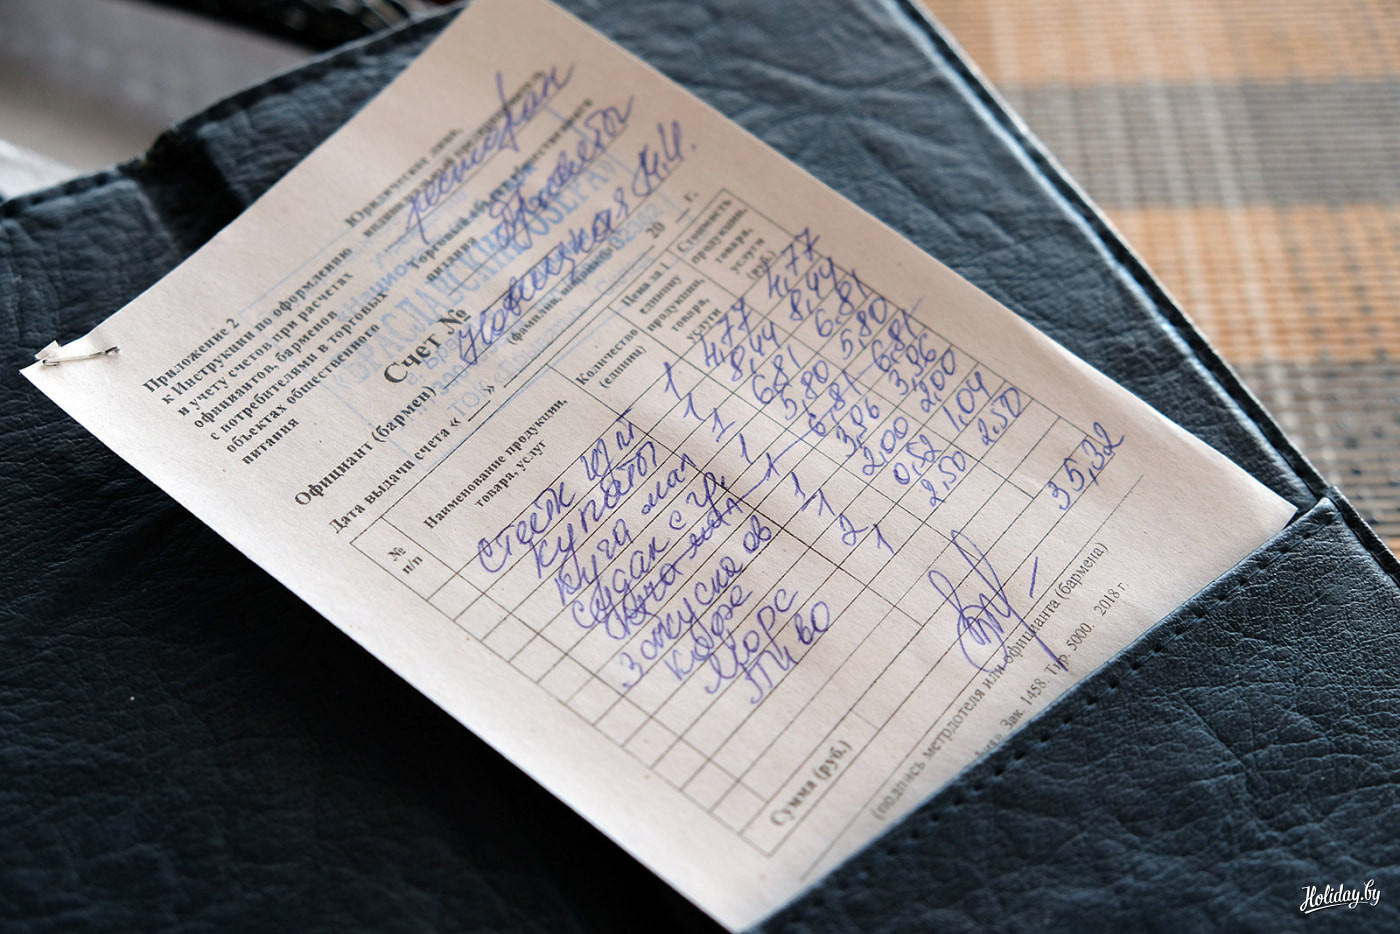 Приложение 2
к Инструкции по оформлению
и учету счетов при расчетах
официантов, барменов
с потребителями в торговых
объектах общественного
питания
Юридическое лицо,
индивидуальный предприниматель
ресторан
Торговый объект общественного
питания
БРАСЛАВСКИЕ ОЗЕРА
Счет №
Официант (бармен)
(фамилия, инициалы)
Дата выдачи счета « » 20 г.
№ п/п Наименование продукции, товара, услуг Количество (единиц) Цена за 1 единицу продукции, товара, услуги Стоимость продукции, товара, услуги (руб.)
стейк 1 4.77 4.77
купаты 1 8.44 8.44
1 6.81 6.81
судак с 1 5.80 5.80
1 6.81 6.81
закуска ов 1 3,96 3,96
кофе 1 2.00 2,00
морс 2 0,52 1,04
Пиво 1 2.50 2.50
Сумма (руб.) 35,32
(подпись метрдотеля или официанта (бармена)
Зак. 1458. Тир. 5000. 2018 г.
Holiday.by